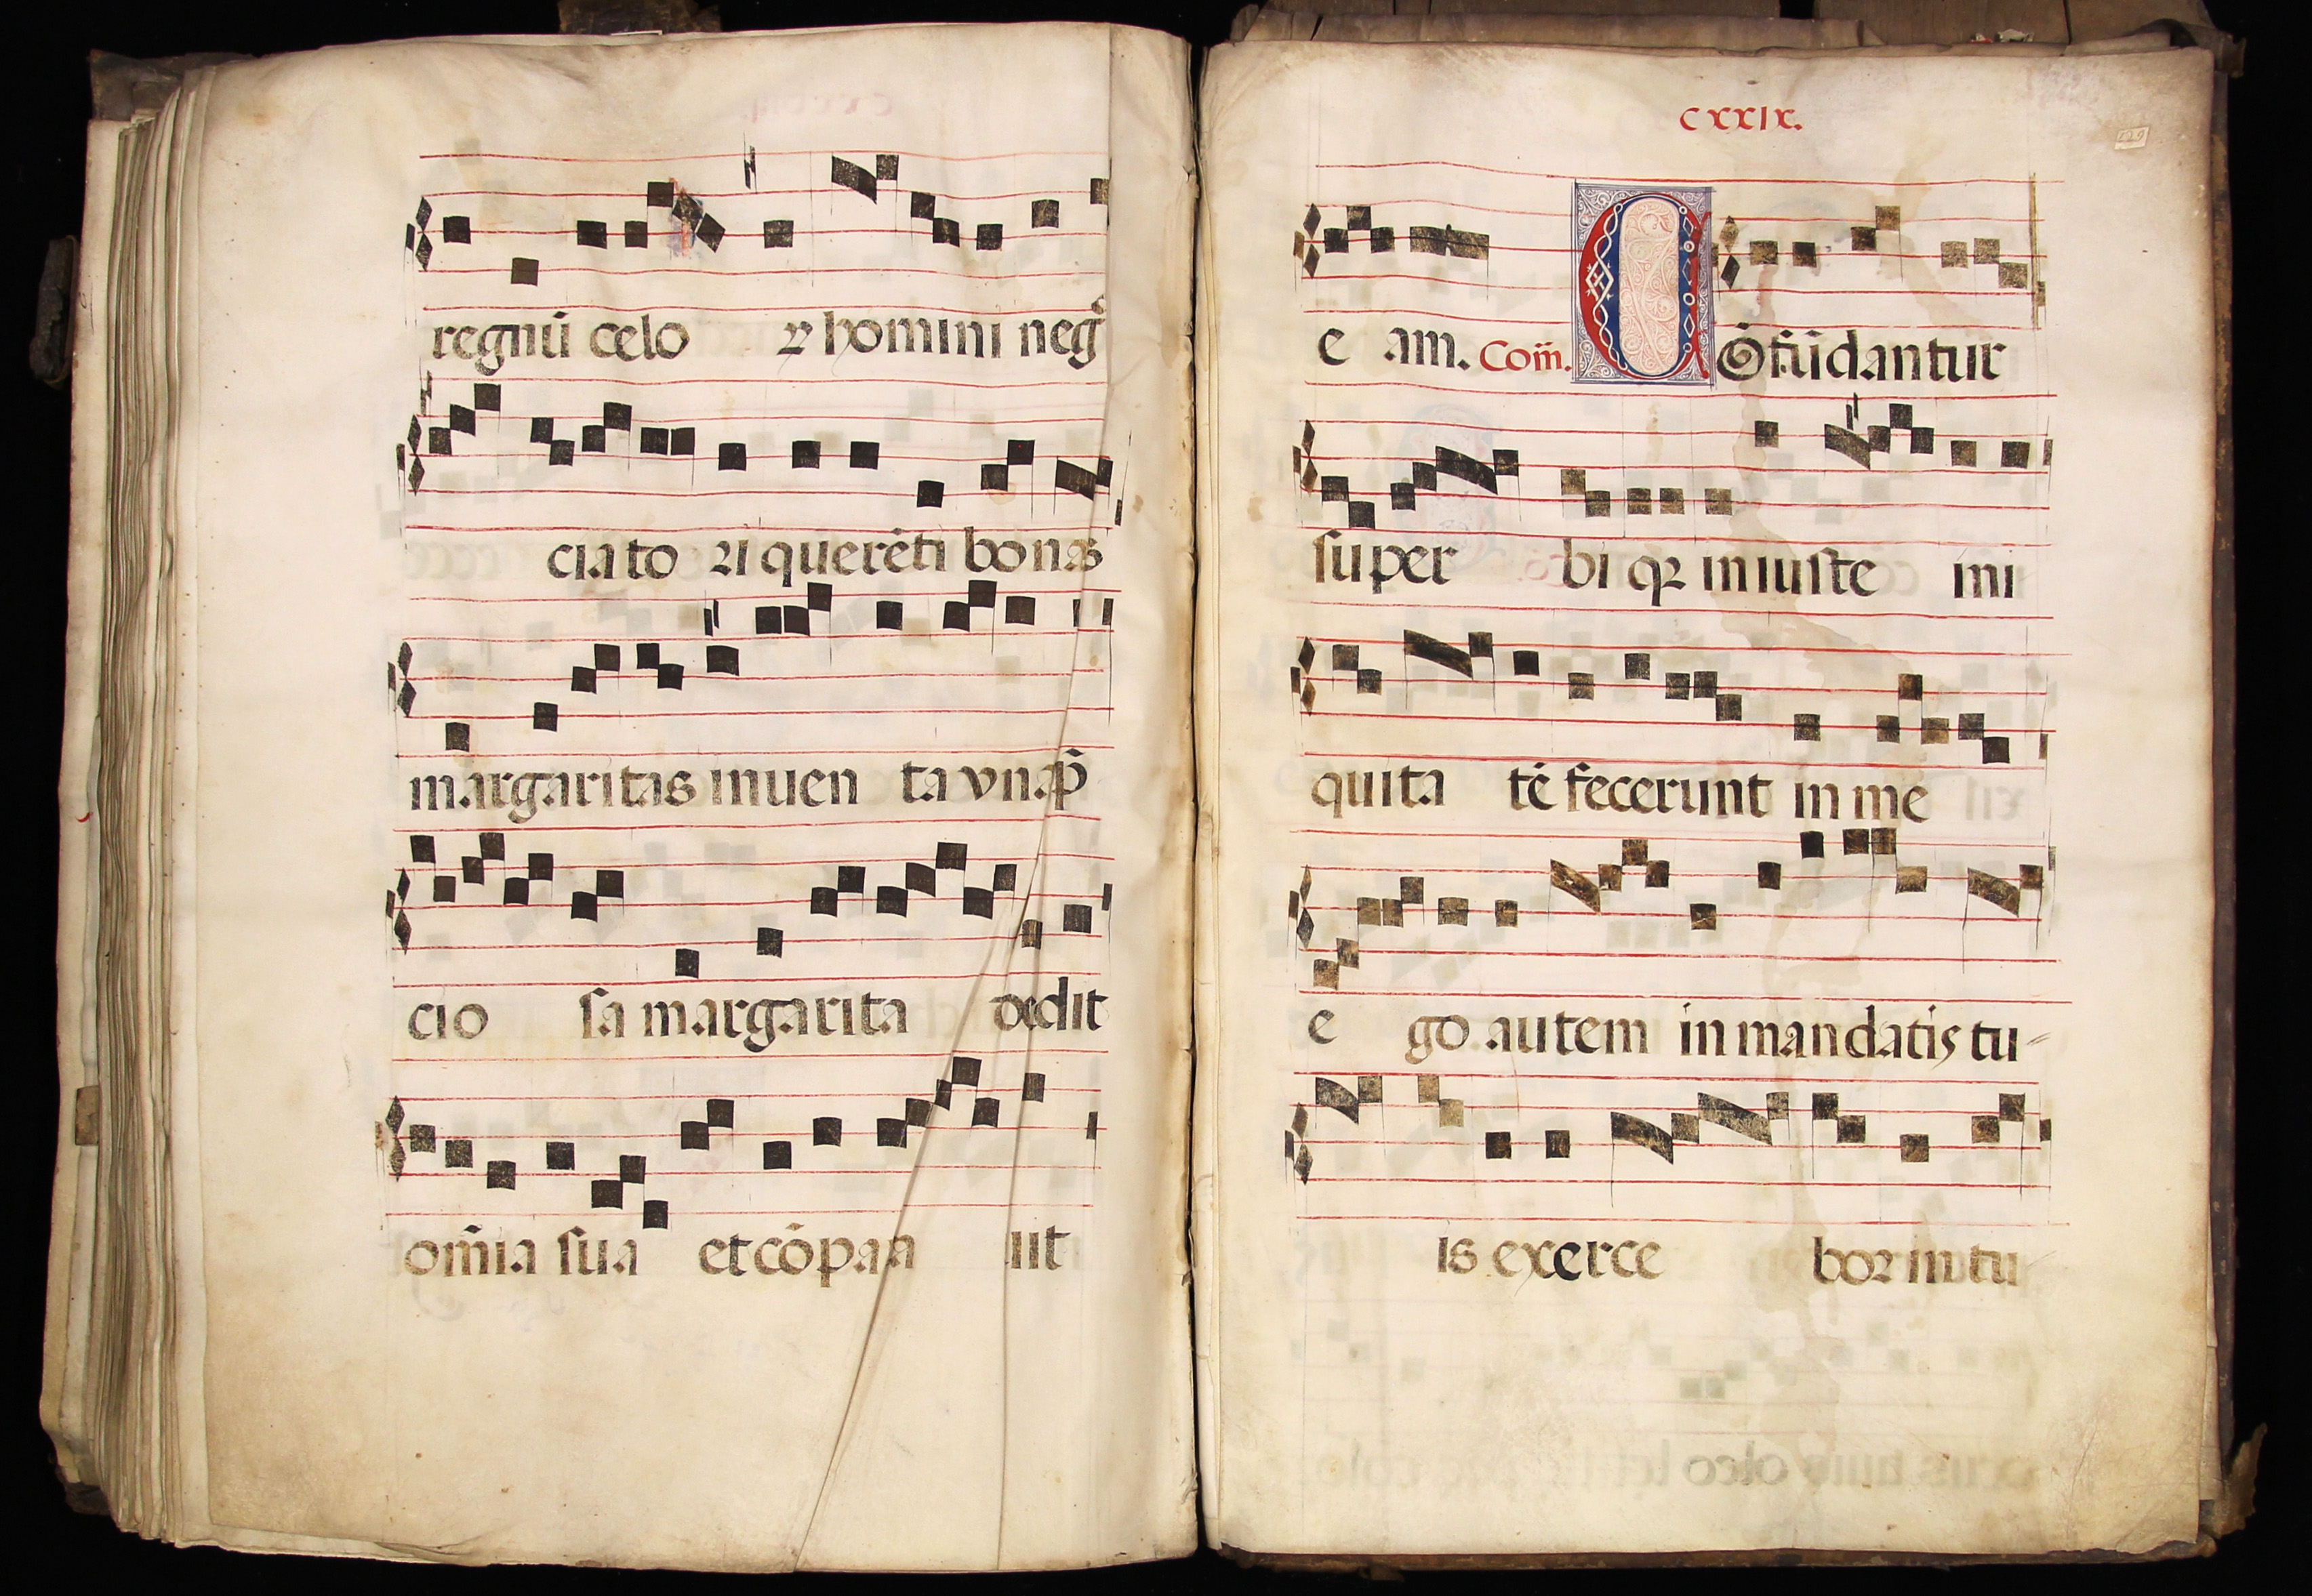 regnū celo ⁊ homini neg
cia to ri querēti bonas
margaritas inuen ta vna p̄
cio sa margarita dedit
om̄ia sua et cōpara uit
CXXIX.
129
e am. Com̄. Cōfūdantur
super bi qꝫ iniuste ini
quita tē fecerunt in me
e go autem in mandatis tu-
is exerce bor in tu